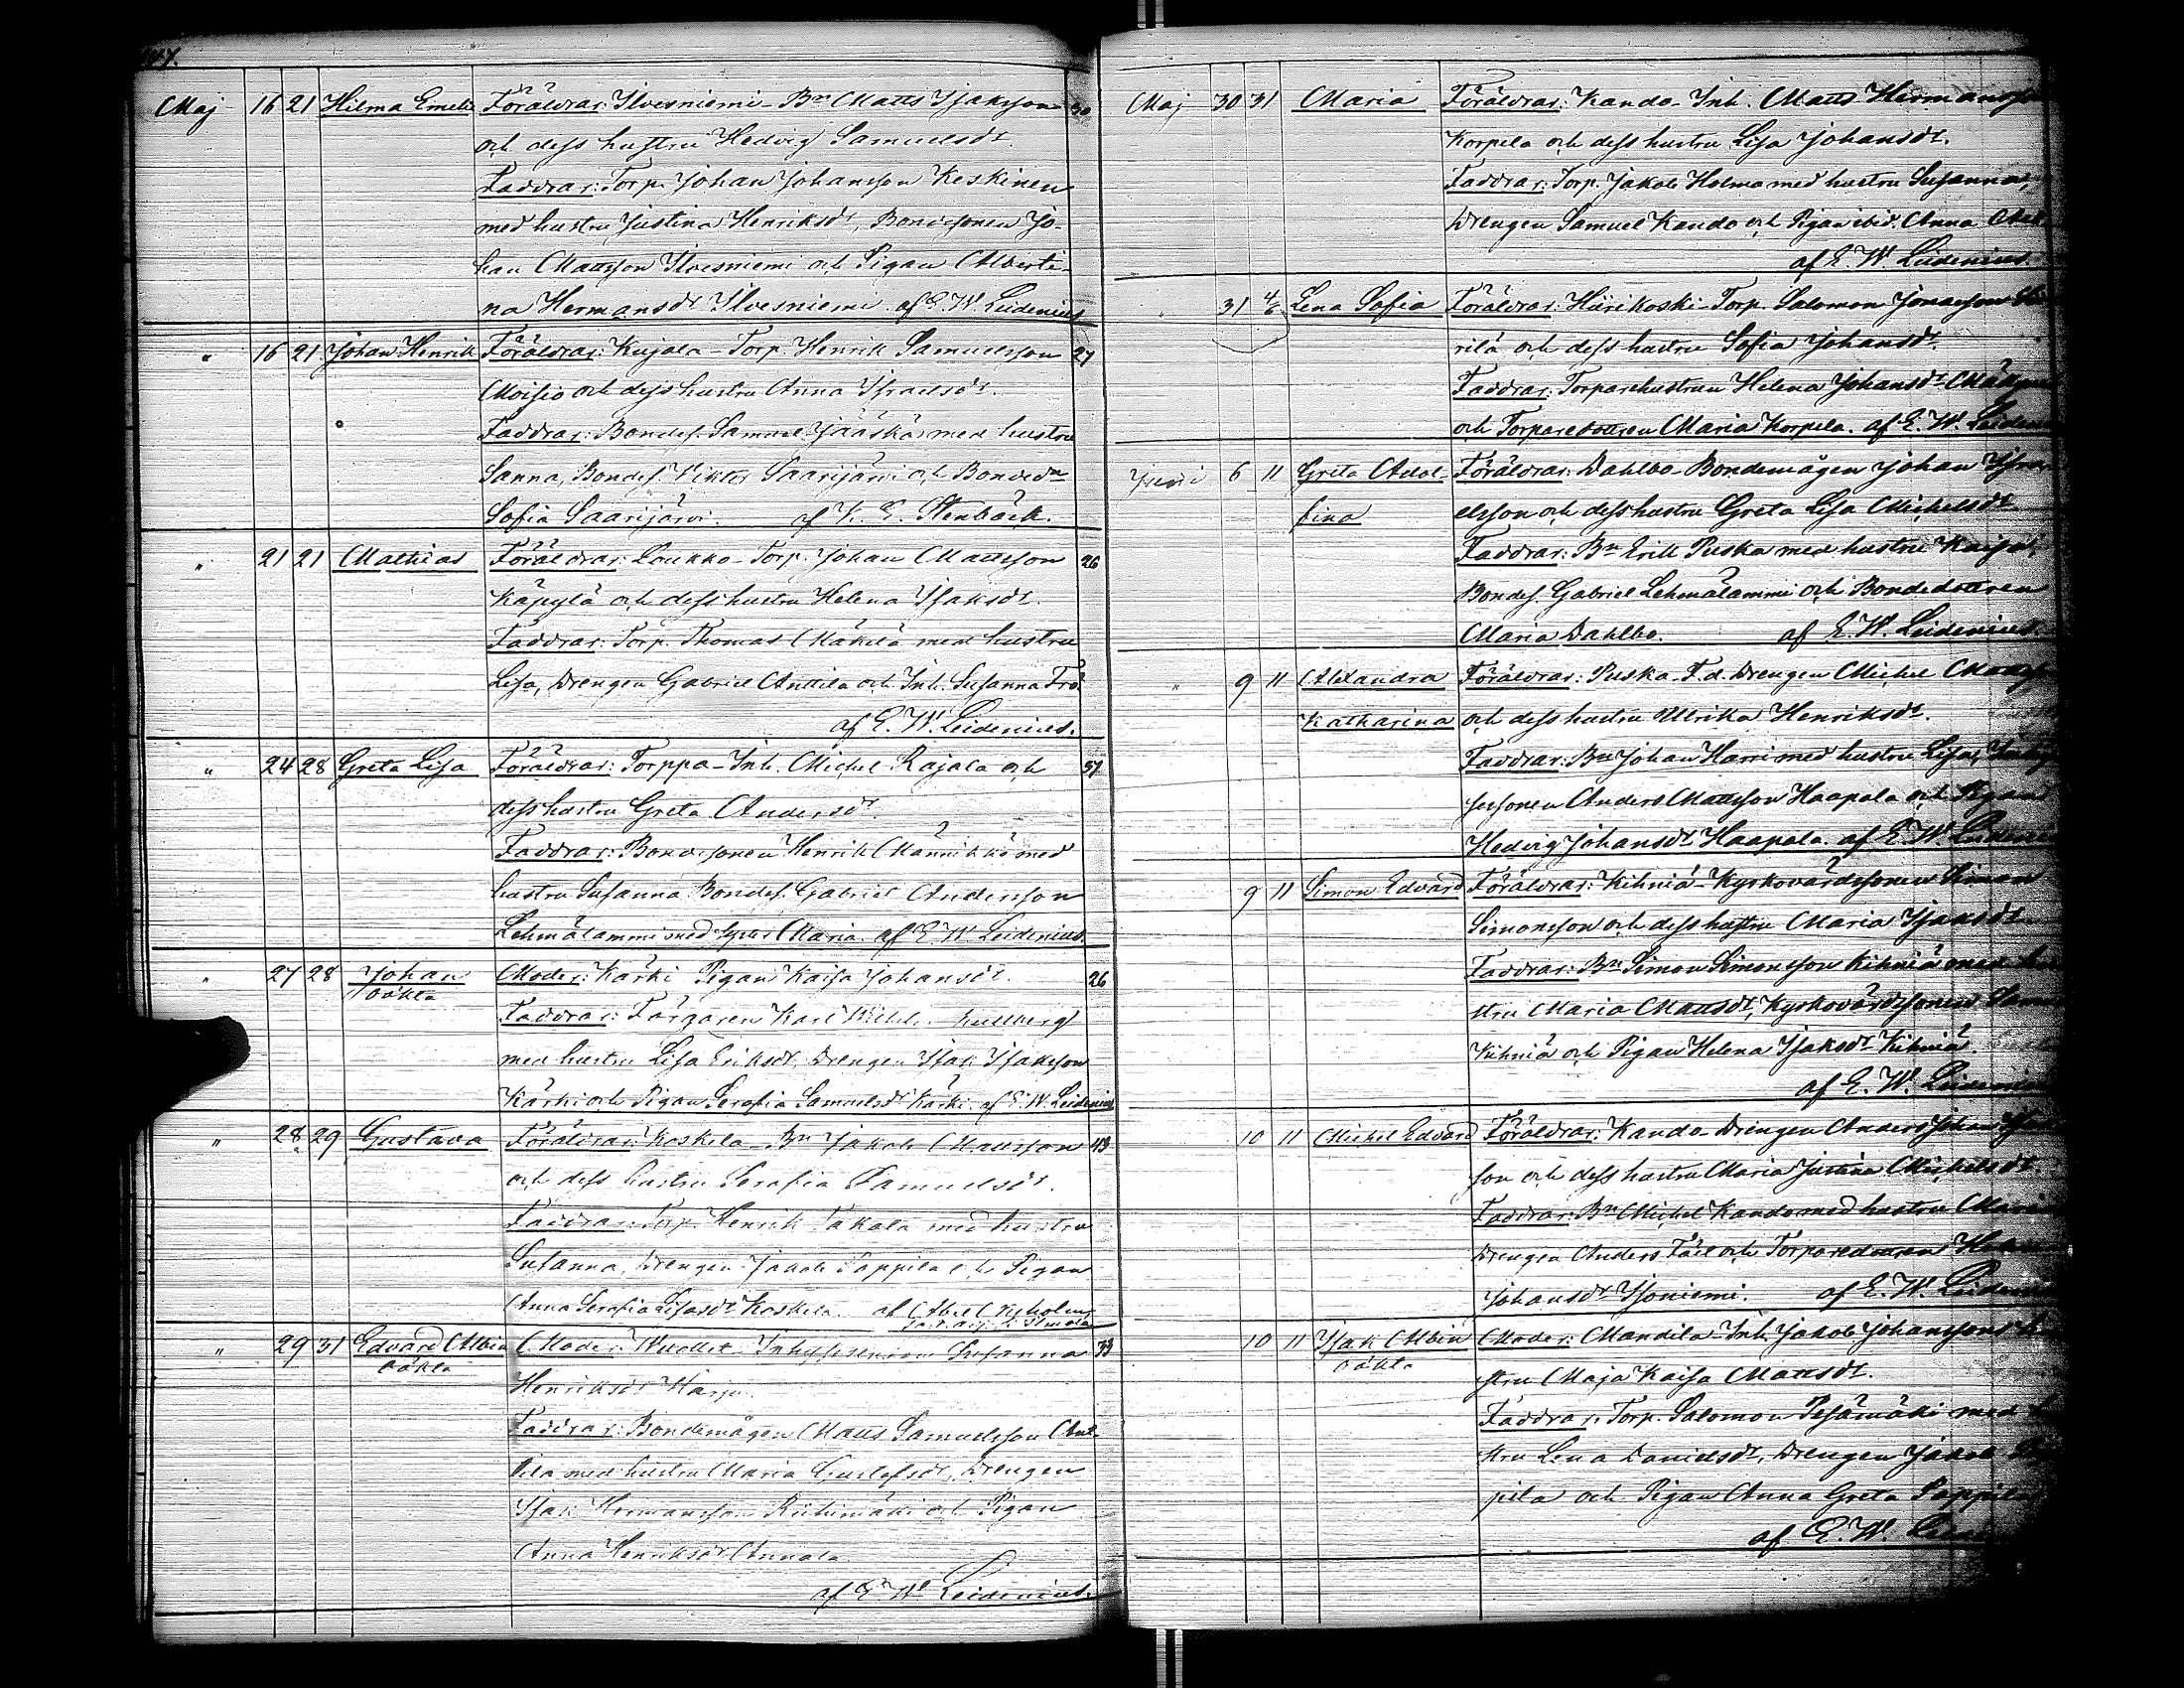 Maj 16 21 Hilma Emelie Föräldrar: Ilvesniemi-Bn Matts Isaksson 30
och dess hustru Hedvig Samuelsdr.
Faddrar: Torp. Johan Johansson Keskinen
med hustru Justina Henriksdr, Bondesonen Jo-
han Mattsson Ilvesniemi och Pigan Alberti-
na Hermansdr Ilvesniemi. af E. W. Leidenius
" 16 21 Johan Henrik Föräldrar: Kujala-Torp. Henrik Samuelsson 27
Moisio och dess hustru Anna Israelsdr.
Faddrar: Bondes. Samuel Jääskä med hustru
Sanna, Bondes. Viktor Saarijärvi och Bondedn
Sofia Saarijärvi. af K. E. Stenbäck.
" 21 21 Mathias Föräldrar: Loukko-Torp. Johan Mattsson 26
Käpylä och dess hustru Helena Isaksdr.
Faddrar: Torp. Thomas Mäkelä med hustru
Lisa, Drengen Gabriel Anttila och Inh. Susanna Frö.
af E. W. Leidenius.
" 24 28 Greta Lisa Föräldrar: Torppa-Inh. Michel Rajala och 37
dess hustru Greta Andersdr.
Faddrar: Bondesonen Henrik Männikkö med
hustru Susanna, Bondes. Gabriel Andersson
Lehmälammi med syster Maria. af E. W. Leidenius.
" 27 28 Johan Moder: Kärki Pigan Kaisa Johansdr. 26
oäkta
Faddrar: Färgaren Karl Wilh. Hullberg
med hustru Lisa Eriksdr, Drengen Isak Isaksson
Kärki och Pigan Serafia Samuelsdr Kärki. af E. W. Leidenius
" 28 29 Gustava Föräldrar: Koskela-Bn Jakob Mattsson 43
och dess hustru Serafia Samuelsdr.
Faddrar: Torp. Henrik Takala med hustru
Susanna, Drengen Jakob Pappila och Pigan
Anna Serafia Lisasdr Koskela. af Abel Nyholm
" 29 31 Edvard Albin Moder: Wuollet-Inhysesenkan Susanna 39
oäkta
Henriksdr Harju.
Faddrar: Bondemågen Matts Samuelsson Ant-
tila med hustru Maria Gustafsdr, Drengen
Isak Hermansson Riihimäki och Pigan
Anna Henriksdr Annala
af E. W. Leidenius.
Maj 30 31 Maria Föräldrar: Kando-Inh. Matts Hermansson
Korpela och dess hustru Lisa Johansdr.
Faddrar: Torp. Jakob Holma med hustru Susanna,
Drengen Samuel Kando och Pigan ibid. Anna
af E. W. Leidenius.
" 31 4/6 Lena Sofia Föräldrar: Hürikoski-Torp. Salomon Jonasson
rilä och dess hustru Sofia Johansdr.
Faddrar: Torparehustrun Helena Johansdr
och Torparedottren Maria Korpela. af E. W. Leidenius
Juni 6 11 Greta Adol- Föräldrar: Dahlbo-Bondemågen Johan Isra-
fina elsson och dess hustru Greta Lisa Michelsdr
Faddrar: Bn Erik Puska med hustru Kaisa,
Bondes. Gabriel Lehmälammi och Bondedottren
Maria Dahlbo. af E. W. Leidenius.
" 9 11 Alexandra Föräldrar: Puska-F.d. Drengen Michel
Katharina och dess hustru Ulrika Henriksdr.
Faddrar: Bn Johan Harri med hustru Lisa,
sesonen Anders Mattsson Haapala och Pigan
Hedvig Johansdr Haapala. af E. W. Leidenius
9 11 Simon Edvard Föräldrar: Kihniä-Kyrkovärdssonen Simon
Simonsson och dess hustru Maria Isaksdr
Faddrar: Bn Simon Simonsson Kihniä med hu-
stru Maria Mattsdr, Kyrkovärdssonen
Kihniä och Pigan Helena Isaksdr Kihniä.
af E. W. Leidenius
10 11 Michel Edvard Föräldrar: Kando-Drengen Anders Johan
son och dess hustru Maria Justina Michelsdr
Faddrar: Bn Michel Kando med hustru Maria
Drengen Anders Fäll och Torparedottren
Johansdr Isoniemi. af E. W. Leidenius
10 11 Isak Albin Moder: Mandila-Inh. Jakob Johanssons hu-
oäkta
stru Maja Kaisa Mattsdr.
Faddrar: Torp. Salomon Pesämäki med hu-
stru Lena Danielsdr, Drengen Jakob
pila och Pigan Anna Greta Pappila
af E. W. Leidenius